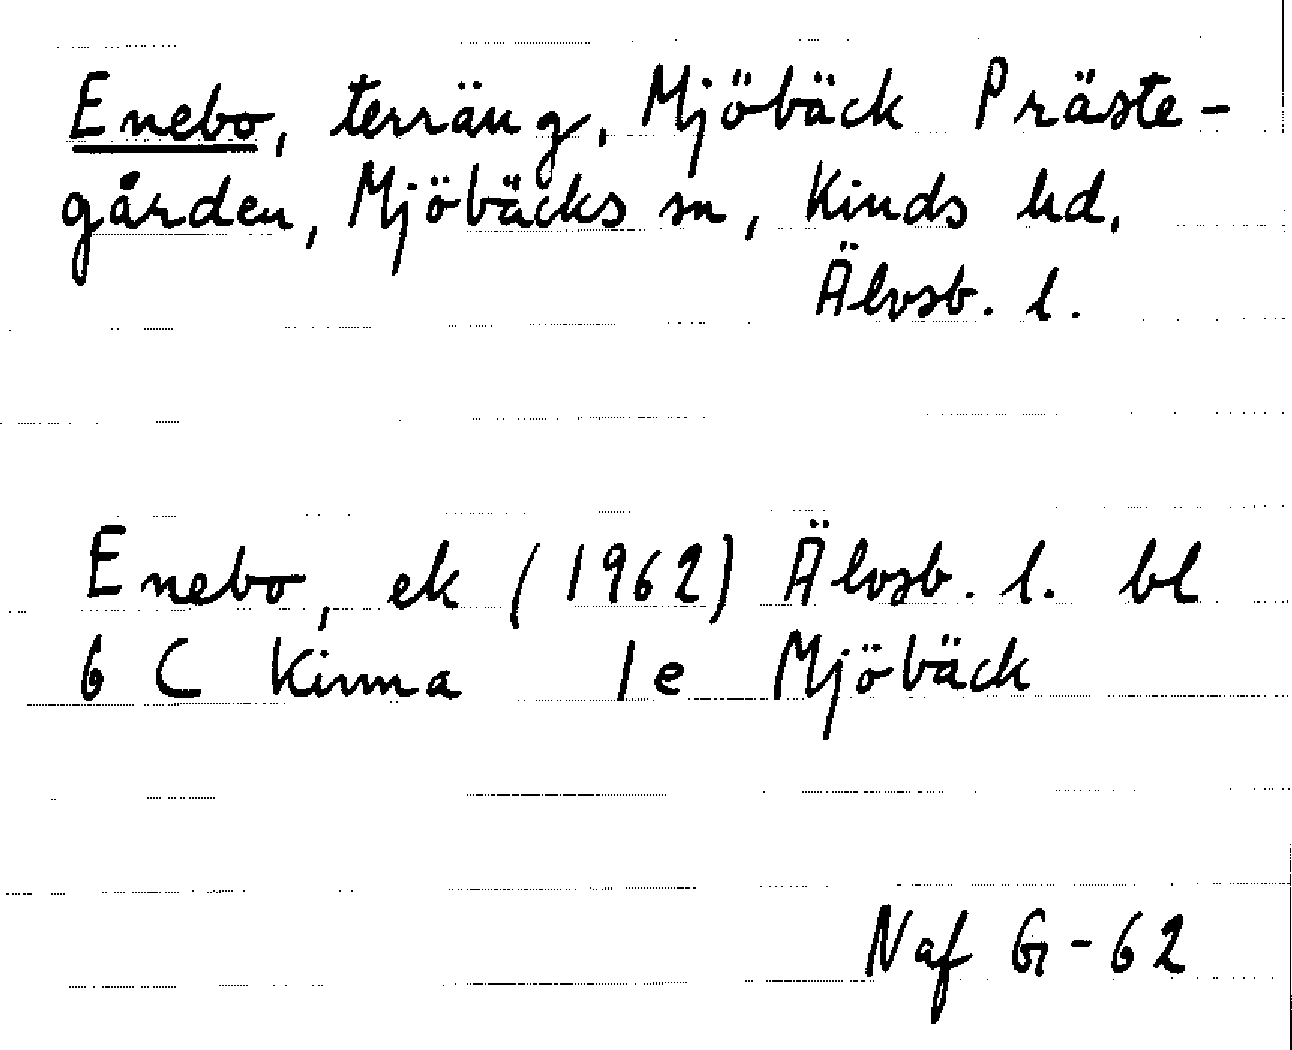 Enebo, terräng, Mjöbäck Präste-
gården, Mjöbäcks sn, Kinds hd,
Älvsb. l.
Enebo, ek (1962) Älvsb. l. bl
6 C Kinna 1e Mjöbäck
Naf G-62